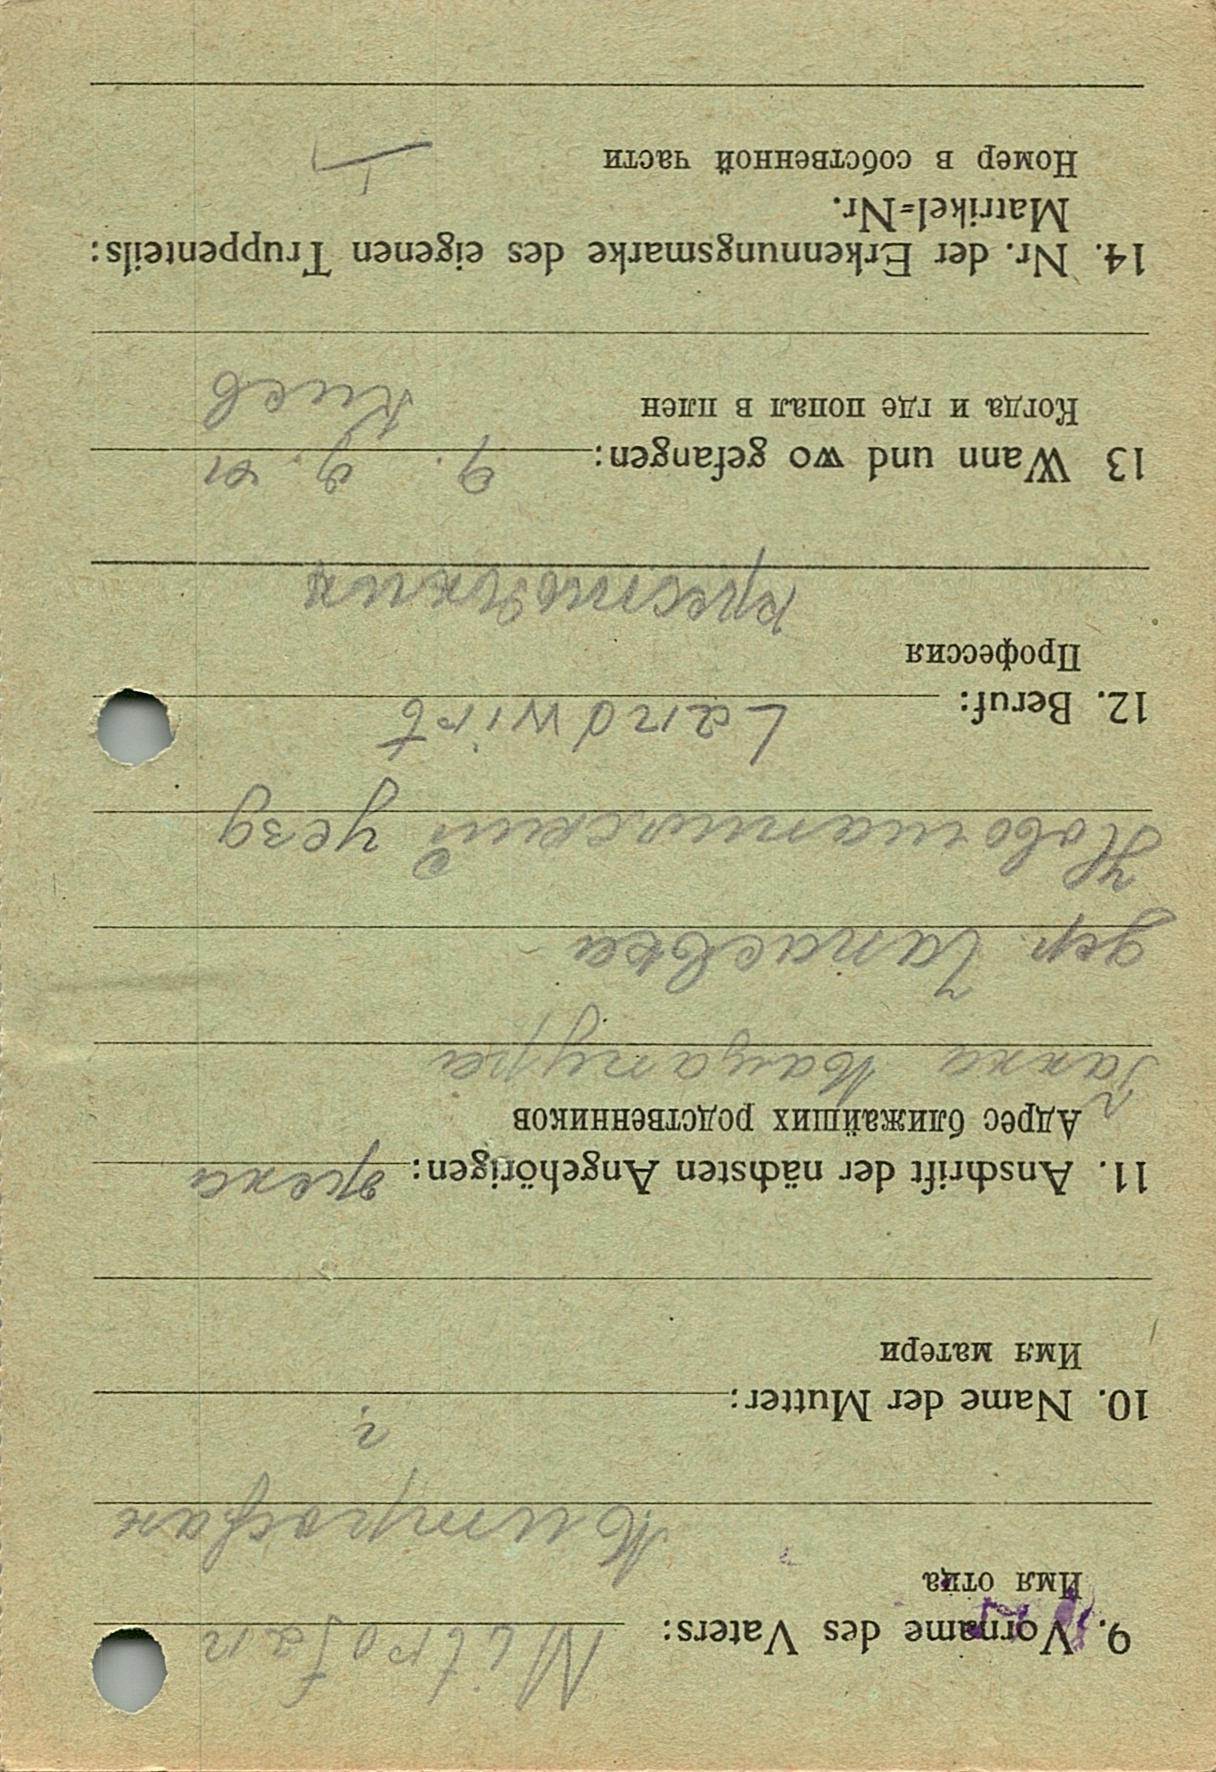 9. Vorname des Vaters: Mitrofan
Имя отца
Митрофан
10. Name der Mutter: ?
Имя матери
11. Anschrift der nächsten Angehörigen: жена
Адрес ближайших родственников
Ганна Кацапура
дер. Чапаевка
уезд
12. Beruf: Landwirt
Профессия
крестьянин
13 Wann und wo gefangen: 9. 9. 41
Когда и где попал в плен Киев
14. Nr. der Erkennungsmarke des eigenen Truppenteils:
Matrikel=Nr.
Номер в собственной части